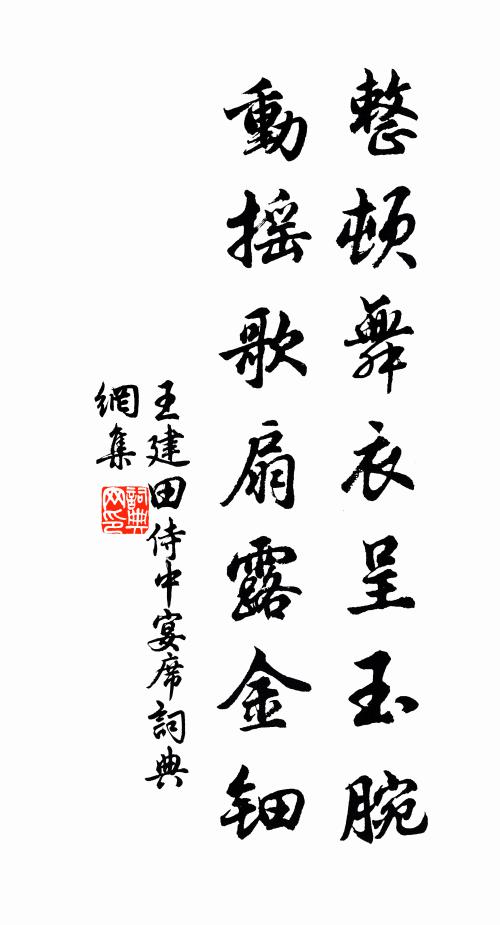 整頓舞衣呈玉腕
動摇歌扇露金鈿
王建田侍中宴席詞典
網集
詞典
网印